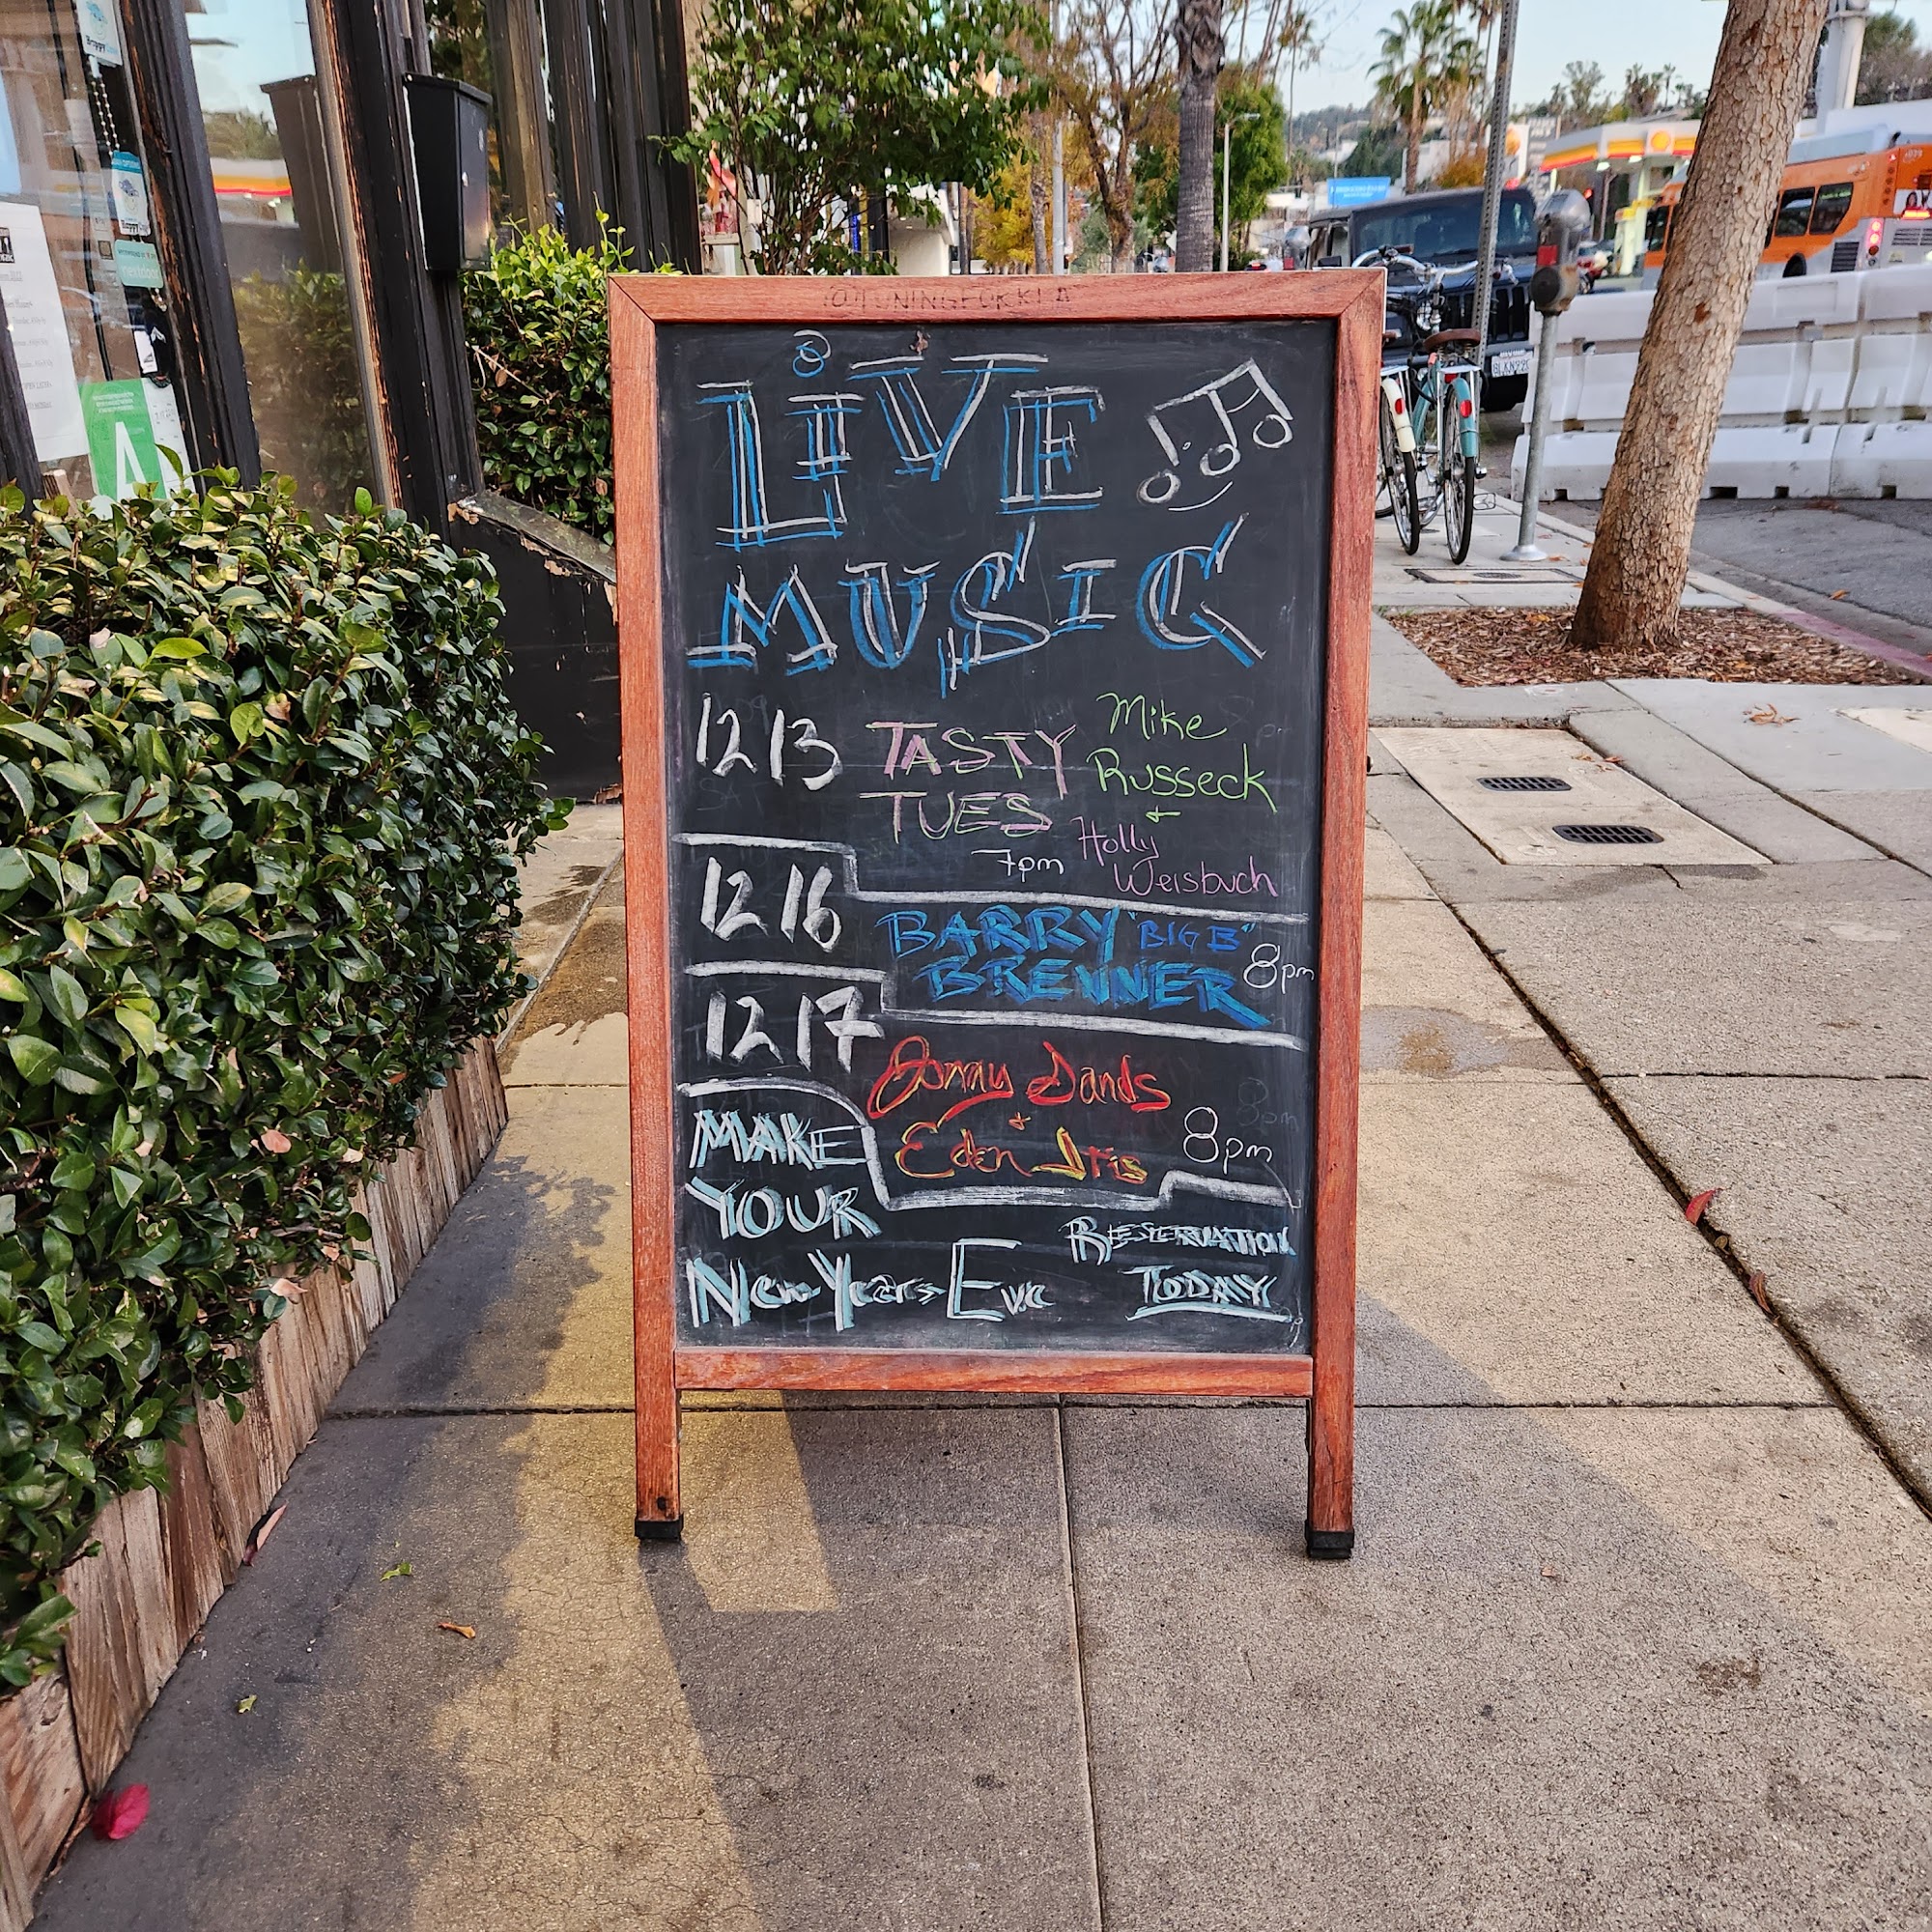 @TUNINGFORKLA
LiVE
MUSIC
12 13 TASTY Mike
Russeck
TUES +
7pm Holly
Weisbuch
12 16 BARRY "BIG B"
BRENNER 8pm
12 17
Jonny Sands
+
Eden Iris 8pm
MAKE
YOUR RESERVATION
New Years Eve TODAY
A
nextdoor